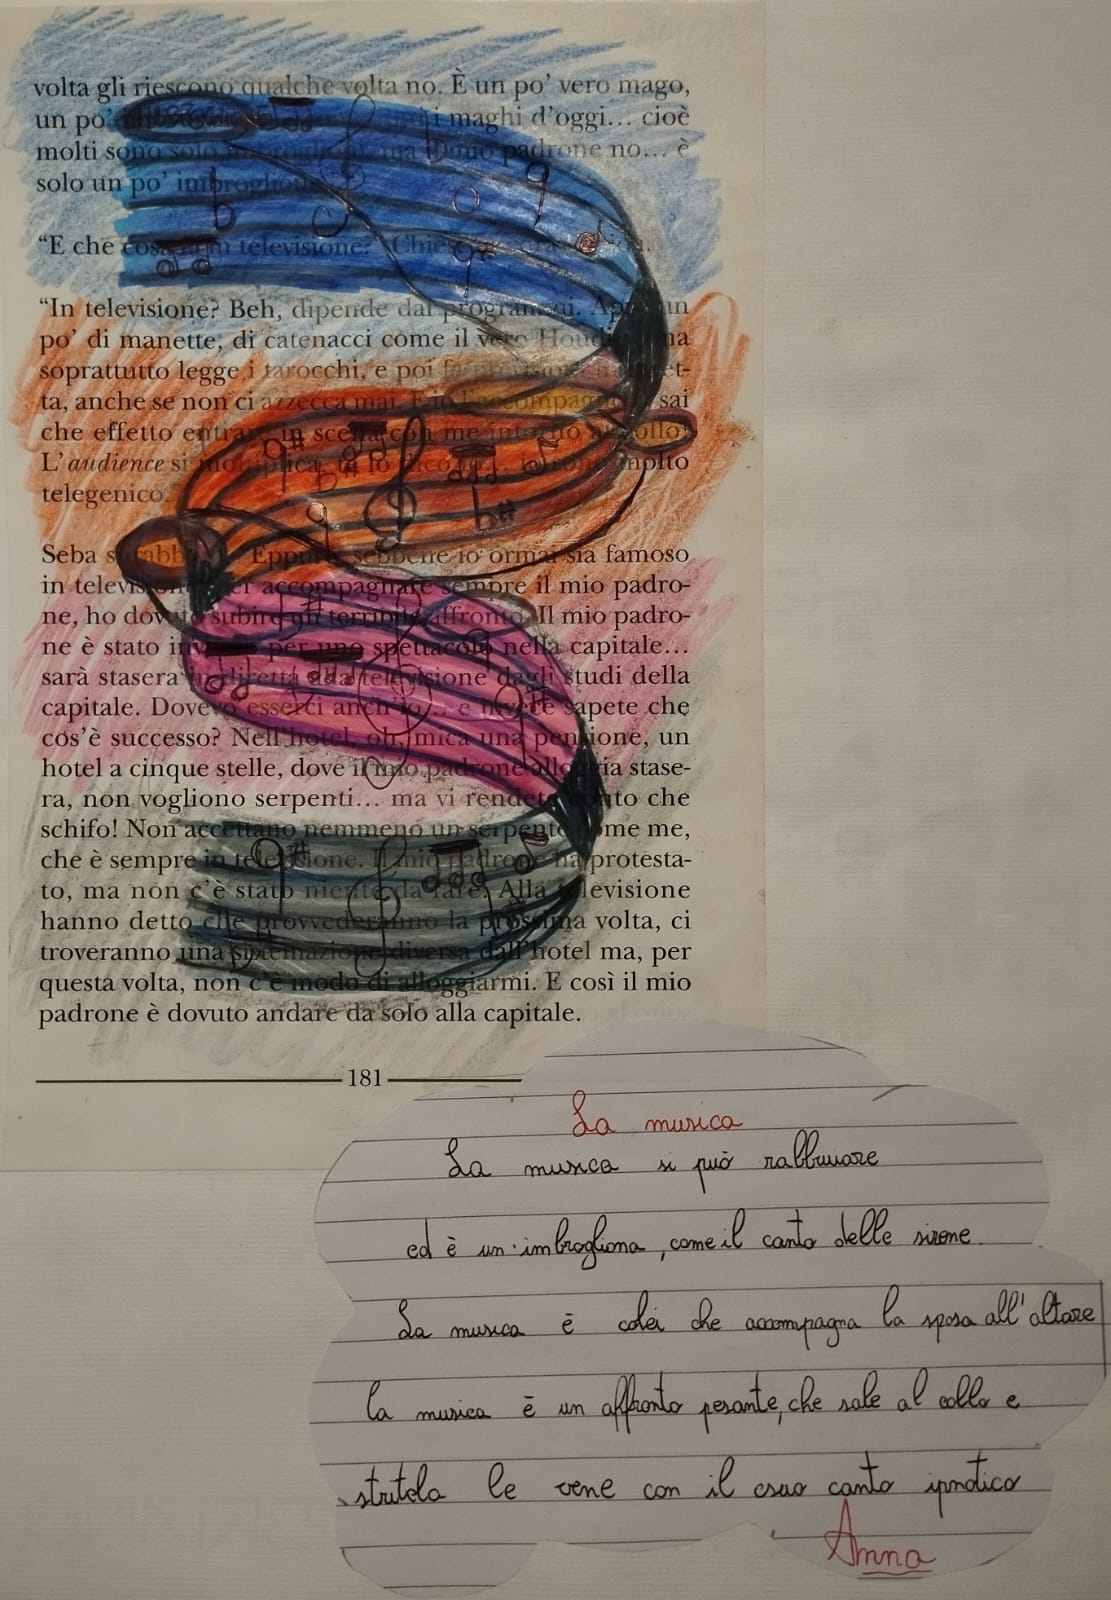 volta gli riescono qualche volta no. È un po' vero mago,
un po' i maghi d'oggi... cioè
molti sono solo imbroglioni, ma il mio padrone no... è
solo un po' imbroglione.
“E che cosa fa in televisione?” Chiese
“In televisione? Beh, dipende dai programmi. Apre un
po' di manette, di catenacci come il vero Houdini, ma
soprattutto legge i tarocchi, e poi fa previsioni
ta, anche se non ci azzecca mai. E io l'accompagno, sai
che effetto entrare in scena con me intorno al collo!
L'audience si moltiplica, te lo dico io... sono molto
telegenico.
Seba s'arrabbiò. “Eppure sebbene io ormai sia famoso
in televisione per accompagnare sempre il mio padro-
ne, ho dovuto subire un terribile affronto. Il mio padro-
ne è stato invitato per uno spettacolo nella capitale...
sarà stasera in diretta alla televisione dagli studi della
capitale. Dovevo esserci anch'io... e invece sapete che
cos'è successo? Nell'hotel, oh, mica una pensione, un
hotel a cinque stelle, dove il mio padrone alloggia stase-
ra, non vogliono serpenti... ma vi rendete conto che
schifo! Non accettano nemmeno un serpente come me,
che è sempre in televisione. Il mio padrone ha protesta-
to, ma non c'è stato niente da fare. Alla televisione
hanno detto che provvederanno la prossima volta, ci
troveranno una sistemazione diversa dall'hotel ma, per
questa volta, non c'è modo di alloggiarmi. E così il mio
padrone è dovuto andare da solo alla capitale.
181
La musica
La musica si può rabbuiare
ed è un'imbrogliona, come il canto delle sirene.
La musica è colei che accompagna la sposa all'altare
la musica è un affronto pesante, che sale al collo e
stritola le vene con il suo canto ipnotico
Anna